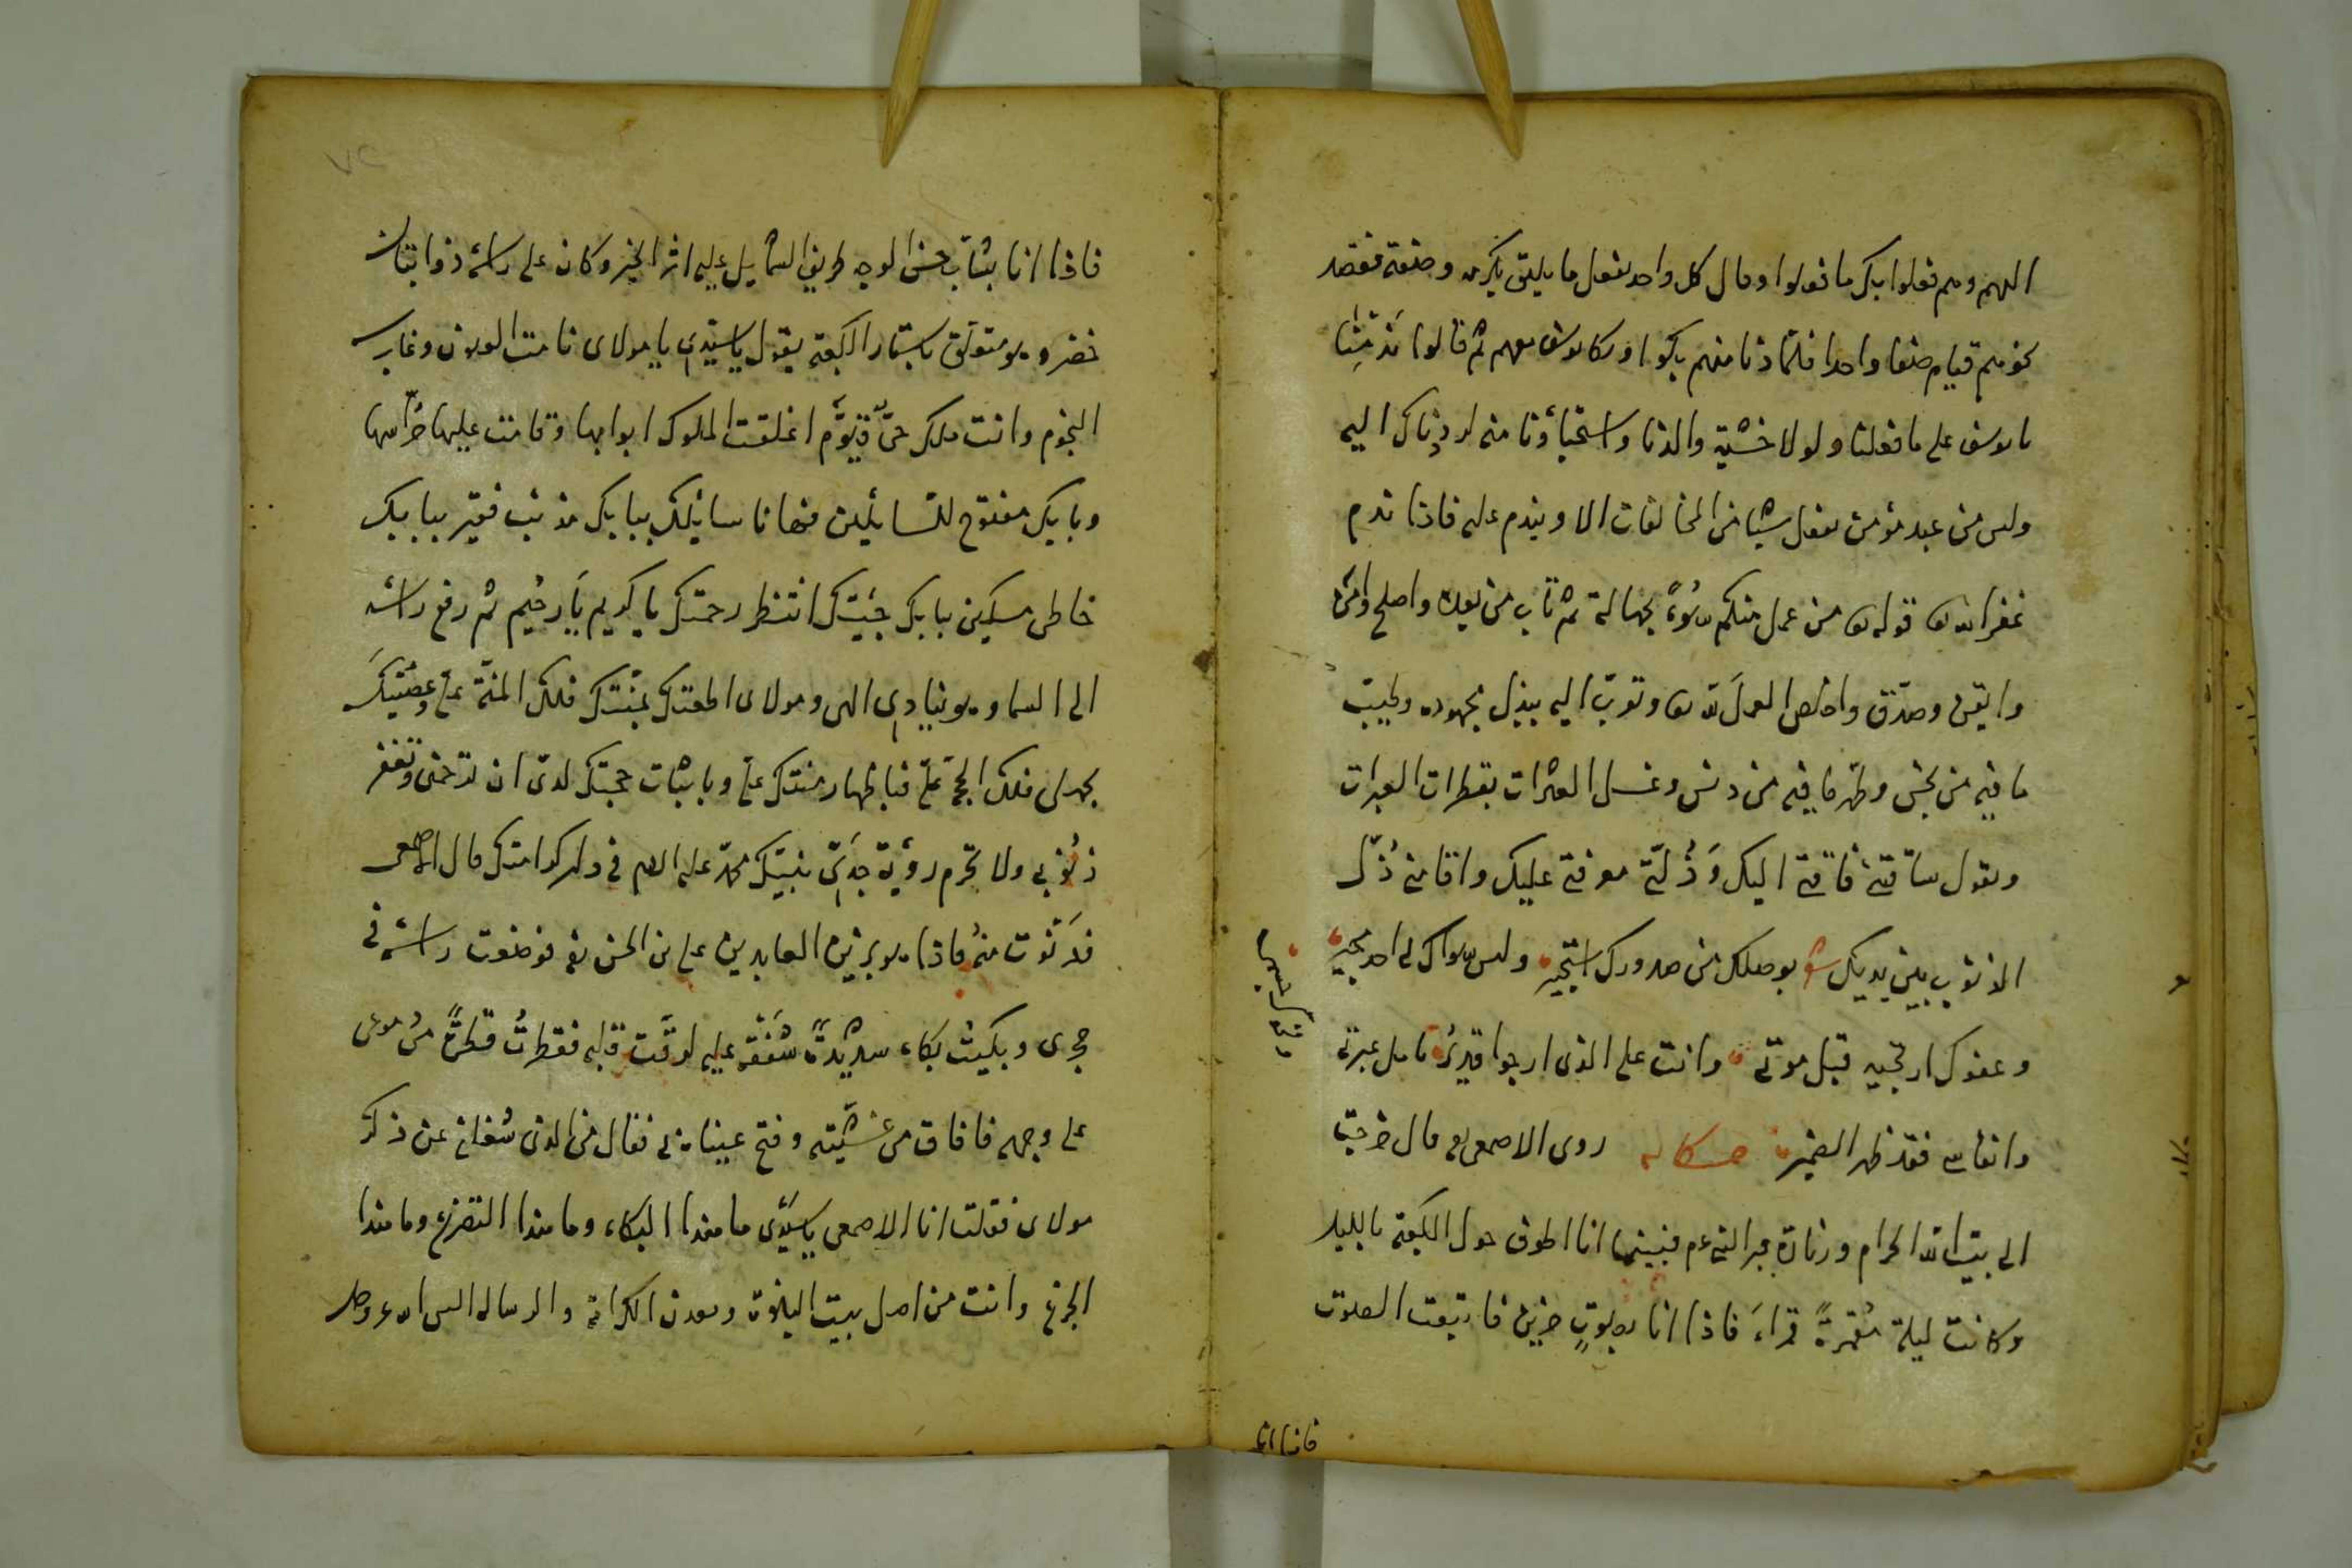 اليهم وهم فعلوا بك ما فعلوا وقال كل واحد يفعل ما يليق بكرمه وصنعه فقصد
نحوهم قيام صفا واحدا فلما دنا منهم بكوا وبكا يوسف معهم ثم قالوا ندمنا
يا يوسف على ما فعلنا ولولا خشية والدنا واستحياؤنا منه لرددناك اليه
وليس من عبد مؤمن يفعل شيئا من المخالفات الا ويندم عليه فاذا ندم
غفر الله تع قوله تع من عمل منكم سوءً بجهالة ثم تاب من بعده واصلح وامن
وايقن وصدّق واخلص العمل لله تع وتقرب اليه ببذل مجهوده وطيب
ما فيه من نجس وطهر ما فيه من دنس وغسل العثرات بقطرات العبرات
ويقول ساقتني فاقتي اليك وَذُلتي موقفي عليك واقامني ذُلّ
الذنوب بين يديك شعر بوصلك من صدودك استجير وليس سواك لي احد مجير
وعفوك ارتجيه قبل موتي وانت على الذي ارجوا قدير تأمل عبرتي
وانفاسي فقد ظهر الضمير حكايه روى الاصمعي قال خرجت
الى بيت الله الحرام وزيارة قبر النبي عم فبينما انا اطوف حول الكعبة بالليل
وكانت ليلة مُقمرةً قمراءَ فاذا انا بصوتٍ حزين فاتبعت الصوت
فاذا انا
فاذا انا بشاب حسن الوجه ظريف الشمايل عليه اثر الخير وكان على راسه ذوابتان
خضر وهو متعلق باستار الكعبة يقول يا سيدي يا مولاى نامت العيون وغارت
النجوم وانت ملك حىّ قيّوم اغلقت الملوك ابوابها وقامت عليها حُرّاسها
وبابك مفتوح للسايلين فها انا سايلك ببابك مذنب فقير ببابك
خاطى مسكين ببابك جئتك انتظر رحمتك يا كريم يا رحيم ثم رفع راسه
الى السماء وهو ينادي الهى ومولاى اطعتك بمنّتك فلك المنّة علىّ وعصيتك
بجهلى فلك الحجة علىّ فباظهار منتك علىّ وباثبات حجتك لدىّ ان ترحمنى وتغفر
ذنوبي ولا تحرم رؤية جدّي نبيّك محمد عليه السلم فى دار كرامتك قال الاصمعى
فدنوت منه فاذا هو زين العابدين على بن الحسين فوضعت راسه فى
حجرى وبكيت بكاء شديدةً شفقة عليه لرقّت قلبه فقطرت قطرةً من دموعى
على وجهه فافاق من غشيته وفتح عيناه فقال من الذى شغلنى عن ذكر
مولاى فقلت انا الاصمعى يا سيّدى ما هذا البكاء وما هذا التضرع وما هذا
الجزع وانت من اهل بيت النبوة ومعدن الكرامة والرساله اليس الله عز وجل